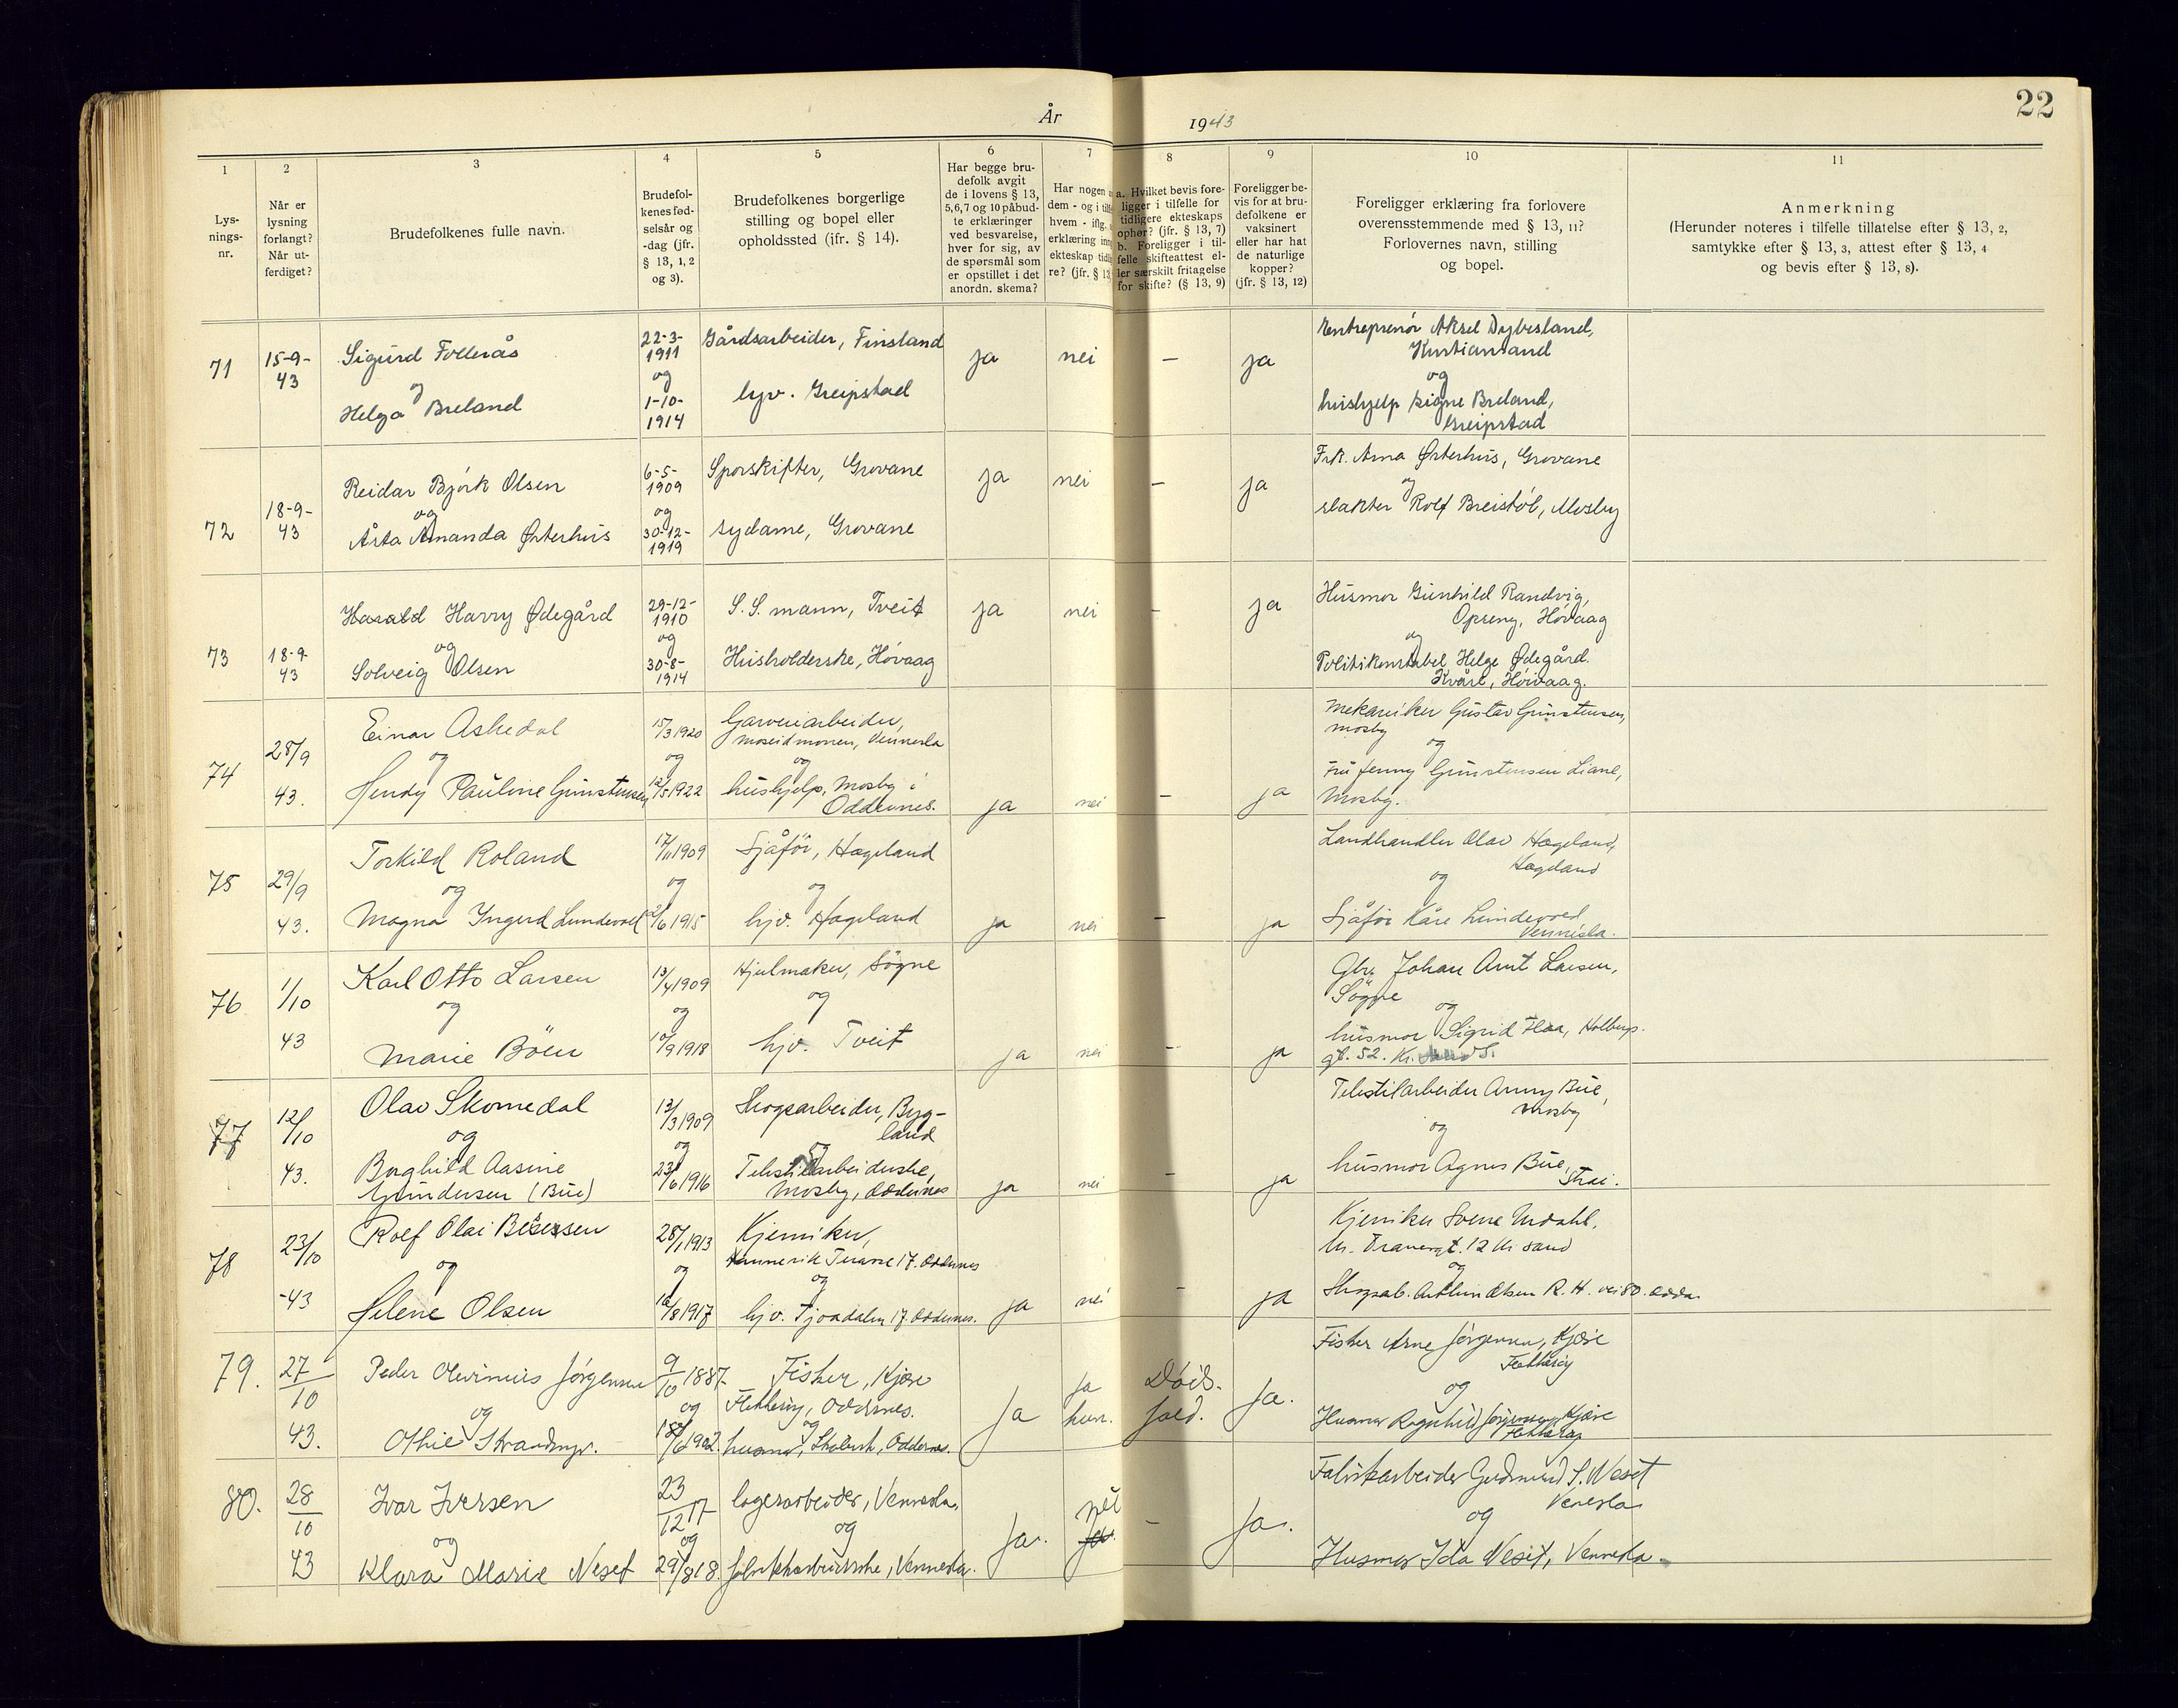 År 1943
22
1
2
3
4
5
6
7
8
9
10
11
Lys-
nings-
nr.
Når er
lysning
forlangt?
Når ut-
ferdiget?
Brudefolkenes fulle navn.
Brudefol-
kenes fød-
selsår og
-dag (jfr.
§ 13, 1, 2
og 3).
Brudefolkenes borgerlige
stilling og bopel eller
opholdssted (jfr. § 14).
Har begge bru-
defolk avgit
de i lovens § 13,
5,6,7 og 10 påbud-
te erklæringer
ved besvarelse,
hver for sig, av
de spørsmål som
er opstillet i det
anordn. skema?
Har nogen
dem - og i
hvem - iflg.
erklæring
ekteskap
re? (jfr. § 13
a. Hvilket bevis fore-
ligger i tilfelle for
tidligere ekteskaps
ophør? (jfr. § 13, 7)
b. Foreligger i til-
felle skifteattest el-
ler særskilt fritagelse
for skifte? (§ 13, 9)
Foreligger be-
vis for at bru-
defolkene er
vaksinert
eller har hat
de naturlige
kopper?
(jfr. § 13, 12)
Foreligger erklæring fra forlovere
overensstemmende med § 13, 11?
Forlovernes navn, stilling
og bopel.
Anmerkning
(Herunder noteres i tilfelle tillatelse efter § 13, 2,
samtykke efter § 13, 3, attest efter § 13, 4
og bevis efter § 13, 8).
71
15-9-
43
Sigurd Follerås
og
Helga Breland
22-3-
1911
og
1-10-
1914
Gårdsarbeider, Finsland
hjv. Greipstad
ja
nei
-
ja
Entreprenør Aksel Dybesland,
Kristiansand
og
hushjelp Signe Breland,
Greipstad
72
18-9-
43
Reidar Bjørk Olsen
og
Åsta Amanda Østerhus
6-5-
1909
og
30-12-
1919
Sporskifter, Grovane
sydame, Grovane
ja
nei
-
ja
Frk. Anna Østerhus, Grovane
og
slakter Rolf Breistøl, Mosby
73
18-9-
43
Harald Harry Ødegård
og
Solveig Olsen
29-12-
1910
og
30-8-
1914
S.S. mann, Tveit
Husholderske, Høvaag
ja
nei
-
ja
Husmor Gunhild Randvig,
Opseng, Høvaag
og
Politikonstabel Helge Ødegård.
Kvåse, Høivaag.
74
28/9
43.
Einar Askedal
og
Hendy Pauline Gunstensen
15/3 1920
og
12/5 1922
Garveriarbeider,
Moseidmoen, Vennesla
og
hushjelp, Mosby i
Oddernes.
ja
nei
-
ja
Mekaniker Gustav Gunstensen,
Mosby
og
Fru Jenny Gunstensen Liane,
Mosby.
75
29/9
43.
Torkild Roland
og
Magna Ingerd Lundevold
17/11 1909
og
2/6 1915
Sjåfør, Hægeland
og
hjv. Hægeland
ja
nei
-
ja
Landhandler Olav Hægeland,
Hægeland
og
Sjåfør Kåre Lundevold
Vennesla.
76
1/10
43
Karl Otto Larsen
og
Marie Böen
13/4 1909
og
10/9 1918
Hjulmaker, Søgne
og
hjv. Tveit
ja
nei
-
ja
Gbr. Johan Arnt Larsen,
Søgne
og
husmor Sigrid Flaa, Holbergs.
gt. 52. Kr. S.
77
12/10
43.
Olav Skomedal
og
Borghild Aasine
Gundersen (Bue)
13/3 1909
og
23/6 1916
Skogsarbeider, Byg-
land
og
Tekstilarbeiderske,
Mosby, Oddernes
ja
nei
-
ja
Tekstilarbeider Anny Bue,
Mosby
og
husmor Agnes Bue,
Strai.
78
23/10
-43
Rolf Olai
og
Helene Olsen
28/1 1913
og
16/8 1917
Kjemiker,
Terasse 17. Oddernes
og
hjv. Fjordalen 17. Oddernes.
ja
nei
-
ja
Kjemiker Sverre Urdahl,
gt. 12 Kr. sand
og
Skogsab. Olsen R. H. vei 80. Odder.
79.
27
10
43.
Peder Olevinius Jørgensen
og
Othie Strandmyr.
9/10 1887
og
18/6 1902.
Fisker, Kjøre
Flekkerøy, Oddernes.
og
husmor, Oddernes.
Ja
Ja
hun.
Döds-
fald.
Ja.
Fisker Arne Jørgensen, Kjøre
Flekkerøy
og
Husmor Ragnhild Jørgensen, Kjøre
Flekkerøy
80.
28
10
43
Ivar Iversen
og
Klara Marie Neset
23
12 17
og
29/8 18.
lagerarbeider, Vennesla.
og
fabrikkarbeiderske, Vennesla.
Ja.
nei
ja.
-
Ja.
Fabrikarbeider Gudmund S. Neset
Vennesla
og
Husmor Ida Neset, Vennesla.